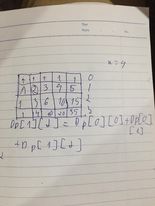 n=4
1 1 1 1 1 0
1 2 3 4 5 1
1 3 6 10 15 2
1 4 10 20 35 3
Dp[1][2] = Dp[0][0]+Dp[0]
[1]
+Dp[1][2]